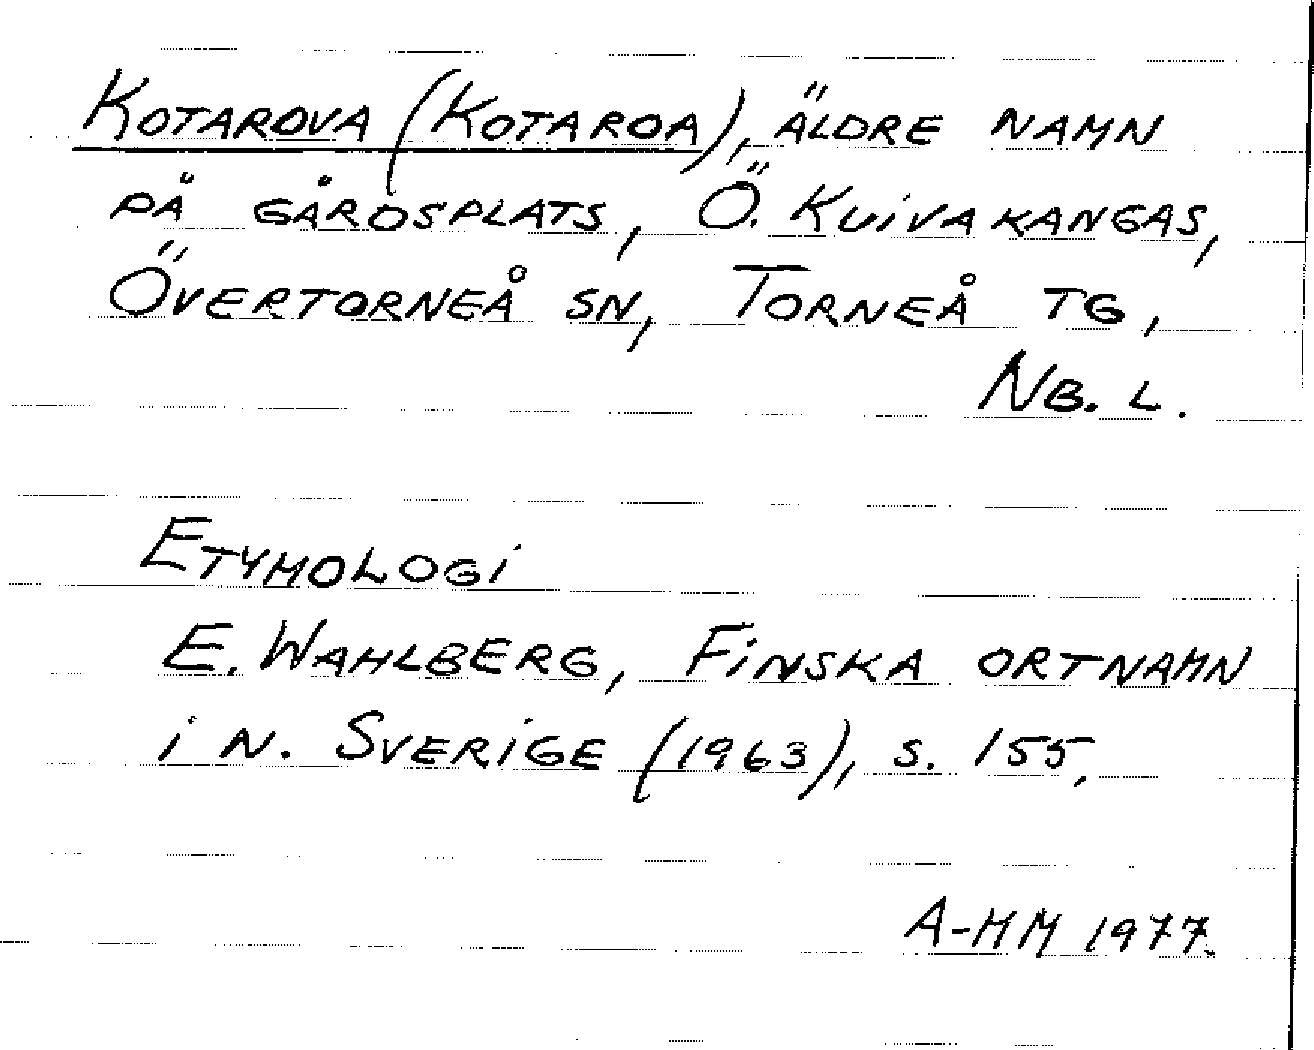 KOTAROVA (KOTAROA), ÄLDRE NAMN
PÅ GÅRDSPLATS, Ö. KUIVAKANGAS,
ÖVERTORNEÅ SN, TORNEÅ TG,
NB. L.
ETYMOLOGI
E. WAHLBERG, FINSKA ORTNAMN
I N. SVERIGE (1963), S. 155,
A-MM 1977.